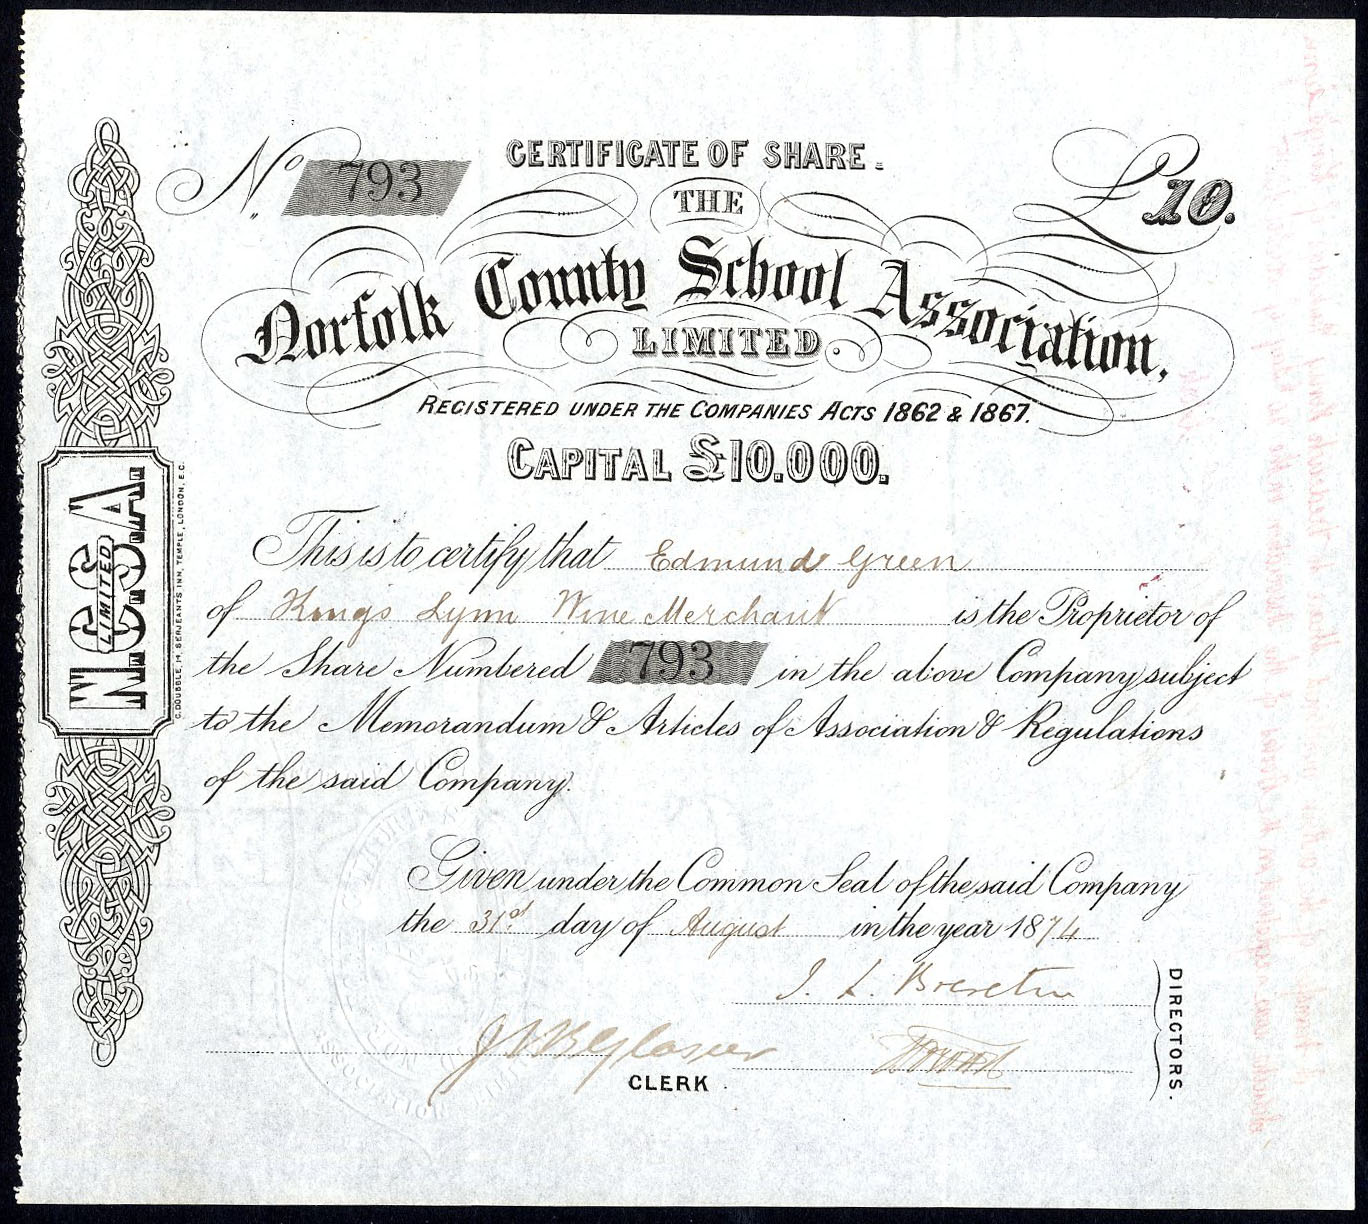 CERTIFICATE OF SHARE.
No. 793
£10.
THE
Norfolk County School Association,
LIMITED.
REGISTERED UNDER THE COMPANIES ACTS 1862 & 1867.
CAPITAL £10.000.
N.C.S.A.
LIMITED
C. DOUBBLE, 14, SERJEANTS INN, TEMPLE, LONDON, E.C.
This is to certify that Edmund Green
of Kings Lynn Wine Merchant is the Proprietor of
the Share Numbered 793 in the above Company subject
to the Memorandum & Articles of Association & Regulations
of the said Company.
Given under the Common Seal of the said Company
the 31st day of August in the year 1874
J. L. Brereton
DIRECTORS.
CLERK.